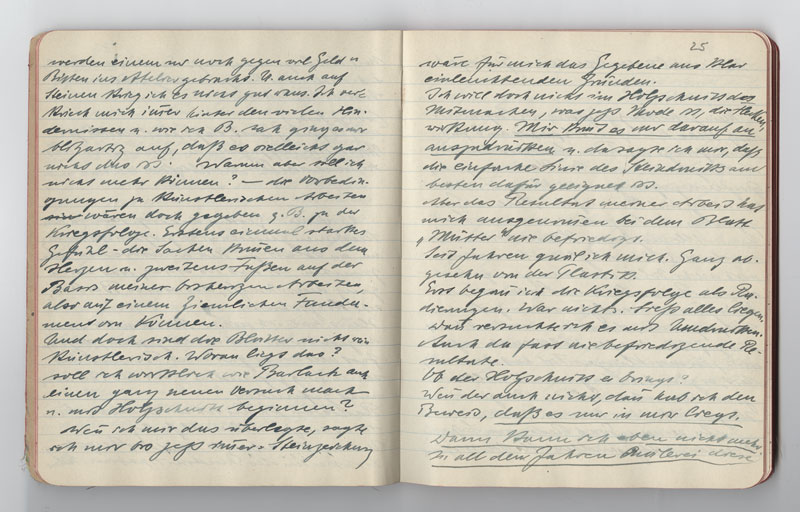 werden einem nur noch gegen viel Geld u
Bitten ins Atelier gebracht. U. auch auf
Steinen krieg ich es nicht gut raus. Ich ver-
kriech mich immer hinter den vielen Hin-
dernissen u. wie ich B. sah ging es mir
blitzartig auf, daß es vielleicht gar
nicht das ist. Warum aber soll ich
nicht mehr können? — die Vorbedin-
gungen zu künstlerischen Arbeiten
wären doch gegeben z.B. zu der
Kriegsfolge. Erstens einmal starkes
Gefühl - die Sachen kommen aus dem
Herzen u. zweitens Fußen auf der
Basis meiner bisherigen Arbeiten,
also auf einem ziemlichen Funda-
ment von Können.
Und doch sind die Blätter nicht
künstlerisch. Woran liegt das?
Soll ich wirklich wie Barlach
einen ganz neuen Versuch machen
u. mit Holzschnitt beginnen?
Wenn ich mir das überlegte, sagte
ich mir bis jetzt immer - Steinzeichnung
25
wäre für mich das Gegebene aus klar
einleuchtenden Gründen.
Ich will doch nicht im Holzschnitt das
Mitmachen, was jetzt Mode ist, die Flecken-
wirkung. Mir kommt es nur darauf an
auszudrücken u. da sagte ich mir, daß
die einfache Linie des Steindrucks am
besten dafür geeignet ist.
Aber das Resultat meiner Arbeit hat
mich ausgenommen bei dem Blatt
„Mütter" nie befriedigt.
Seit Jahren quäl ich mich. Ganz ab-
gesehn von der Plastik.
Erst begann ich die Kriegsfolge als Ra-
dierungen. War nichts. Ließ alles liegen.
Dann versuchte ich es mit Umdrucken.
Auch da fast nie befriedigende Re-
sultate.
Ob der Holzschnitt es bringt?
Wenn der auch nicht, dann hab ich den
Beweis, daß es nur in mir liegt.
Dann kann ich eben nicht mehr.
In all den Jahren Quälerei diese